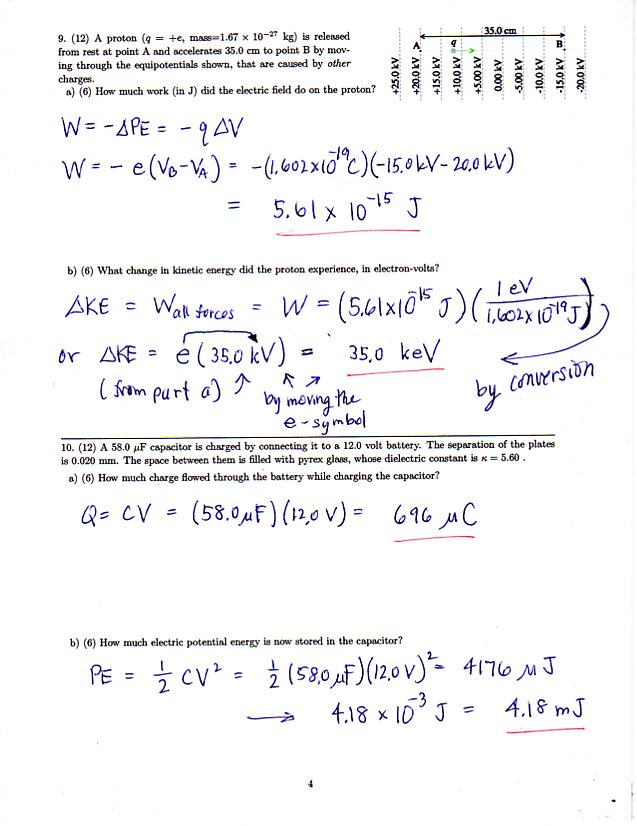 9. (12) A proton (q = +e, mass=1.67 × 10⁻²⁷ kg) is released
from rest at point A and accelerates 35.0 cm to point B by mov-
ing through the equipotentials shown, that are caused by other
charges.
35.0 cm
A q B
+25.0 kV +20.0 kV +15.0 kV +10.0 kV +5.00 kV 0.00 kV -5.00 kV -10.0 kV -15.0 kV -20.0 kV
a) (6) How much work (in J) did the electric field do on the proton?
W = -ΔPE = - q ΔV
W = - e (V_B - V_A) = -(1.602×10⁻¹⁹C)(-15.0 kV - 20.0 kV)
= 5.61 × 10⁻¹⁵ J
b) (6) What change in kinetic energy did the proton experience, in electron-volts?
ΔKE = W_all forces = W = (5.61×10⁻¹⁵ J)(1 eV / 1.602×10⁻¹⁹J)
or ΔKE = e (35.0 kV) = 35.0 keV
by conversion
(from part a) by moving the
e-symbol
10. (12) A 58.0 μF capacitor is charged by connecting it to a 12.0 volt battery. The separation of the plates
is 0.020 mm. The space between them is filled with pyrex glass, whose dielectric constant is κ = 5.60 .
a) (6) How much charge flowed through the battery while charging the capacitor?
Q = CV = (58.0μF)(12.0 V) = 696 μC
b) (6) How much electric potential energy is now stored in the capacitor?
PE = 1/2 CV² = 1/2 (58.0μF)(12.0 V)² = 4176 μJ
→ 4.18 × 10⁻³ J = 4.18 mJ
4